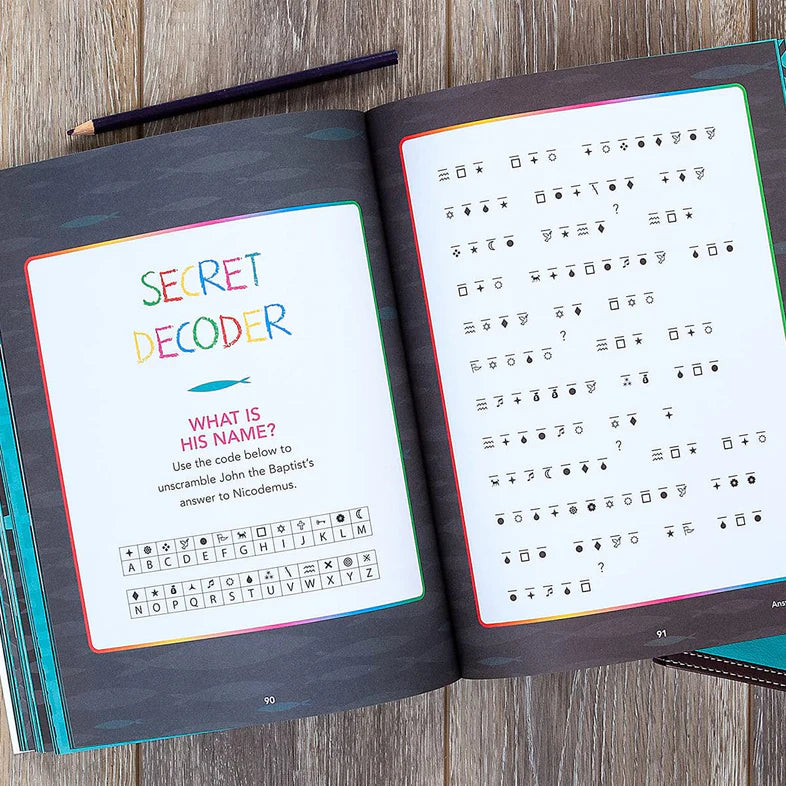 SECRET
DECODER
WHAT IS
HIS NAME?
Use the code below to
unscramble John the Baptist's
answer to Nicodemus.
A B C D E F G H I J K L M
N O P Q R S T U V W X Y Z
90
?
?
?
?
?
?
91